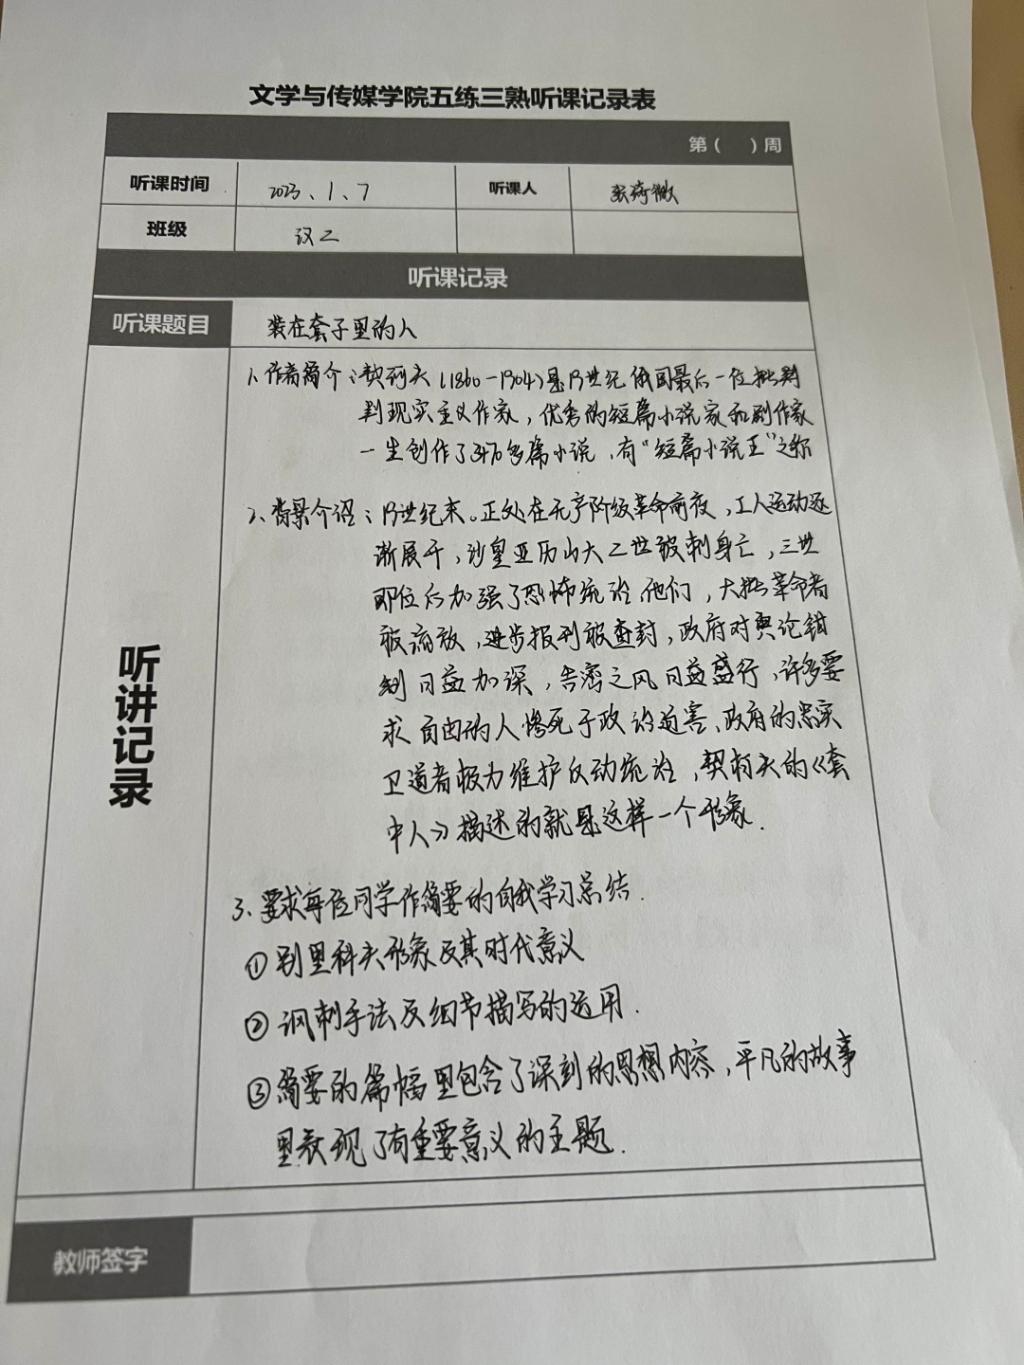 文学与传媒学院五练三熟听课记录表
第（ ）周
听课时间 2023、1、7 听课人 张琦微
班级 汉二
听课记录
听课题目 装在套子里的人
听讲记录
1、作者简介：契诃夫（1860-1904）是19世纪俄国最后一位批判
判现实主义作家，优秀的短篇小说家和剧作家
一生创作了470多篇小说，有“短篇小说王”之称
2、背景介绍：19世纪末。正处在无产阶级革命前夜，工人运动逐
渐展开，沙皇亚历山大二世被刺身亡，三世
即位后加强了恐怖统治他们，大批革命者
被流放，进步报刊被查封，政府对舆论钳
制日益加深，告密之风日益盛行，许多要
求自由的人惨死于政治迫害、政府的忠实
卫道者极力维护反动统治，契柯夫的《套
中人》描述的就是这样一个形象.
3、要求每位同学作简要的自我学习总结.
①别里科夫形象及其时代意义
②讽刺手法及细节描写的运用.
③简要的篇幅里包含了深刻的思想内容，平凡的故事
里表现了有重要意义的主题.
教师签字